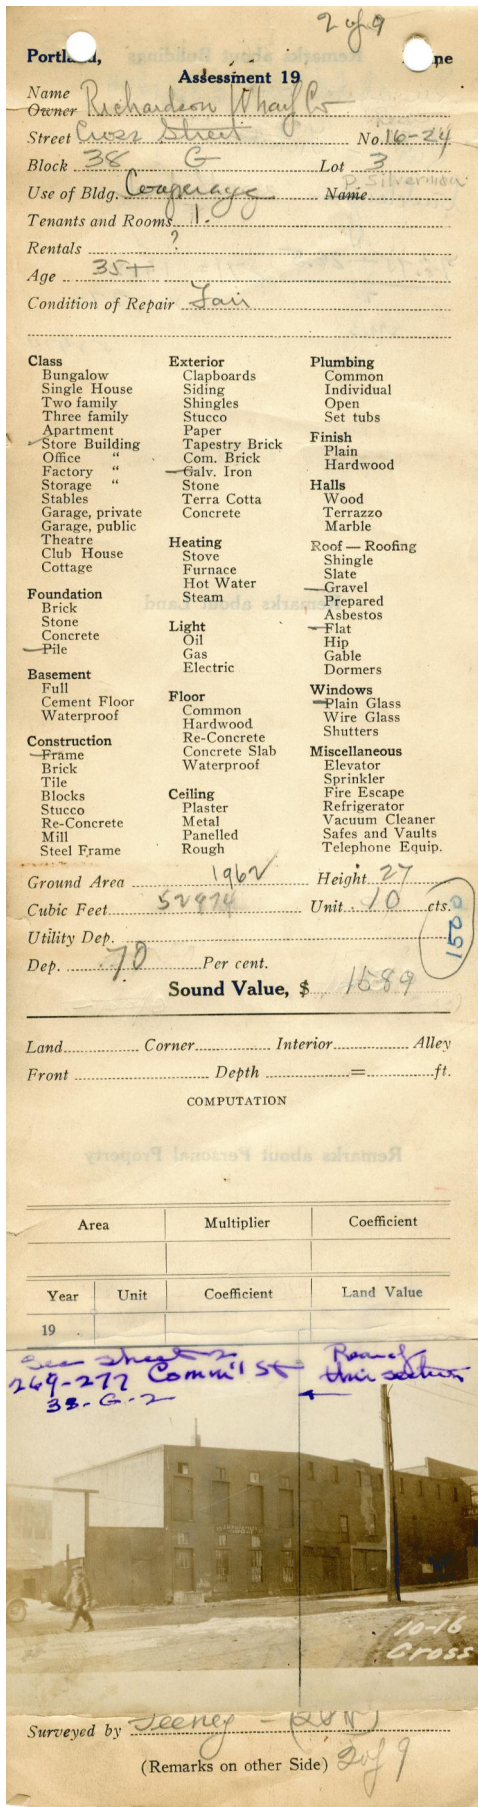 2 of 9
Portland, Maine
Assessment 19
Name
Owner Richardson Wharf Co
Street Cross Street No. 16-24
Block 38 G Lot 3
P. Silverman
Use of Bldg. Cooperage Name
Tenants and Rooms 1.
Rentals ?
Age 35+
Condition of Repair Fair
Class
Bungalow
Single House
Two family
Three family
Apartment
Store Building
Office "
Factory "
Storage "
Stables
Garage, private
Garage, public
Theatre
Club House
Cottage
Foundation
Brick
Stone
Concrete
Pile
Basement
Full
Cement Floor
Waterproof
Construction
Frame
Brick
Tile
Blocks
Stucco
Re-Concrete
Mill
Steel Frame
Exterior
Clapboards
Siding
Shingles
Stucco
Paper
Tapestry Brick
Com. Brick
Galv. Iron
Stone
Terra Cotta
Concrete
Heating
Stove
Furnace
Hot Water
Steam
Light
Oil
Gas
Electric
Floor
Common
Hardwood
Re-Concrete
Concrete Slab
Waterproof
Ceiling
Plaster
Metal
Panelled
Rough
Plumbing
Common
Individual
Open
Set tubs
Finish
Plain
Hardwood
Halls
Wood
Terrazzo
Marble
Roof — Roofing
Shingle
Slate
Gravel
Prepared
Asbestos
Flat
Hip
Gable
Dormers
Windows
Plain Glass
Wire Glass
Shutters
Miscellaneous
Elevator
Sprinkler
Fire Escape
Refrigerator
Vacuum Cleaner
Safes and Vaults
Telephone Equip.
Ground Area 1962 Height 27
Cubic Feet 52974 Unit 10 cts.
1500
Utility Dep.
Dep. 70 Per cent.
Sound Value, $ 1589
Land Corner Interior Alley
Front Depth = ft.
COMPUTATION
Area Multiplier Coefficient
Year Unit Coefficient Land Value
19
See sheet 2
269-277 Comm'l St
38-G-2
this section
10-16
Cross
Surveyed by Feeney
(Remarks on other Side) 2 of 9